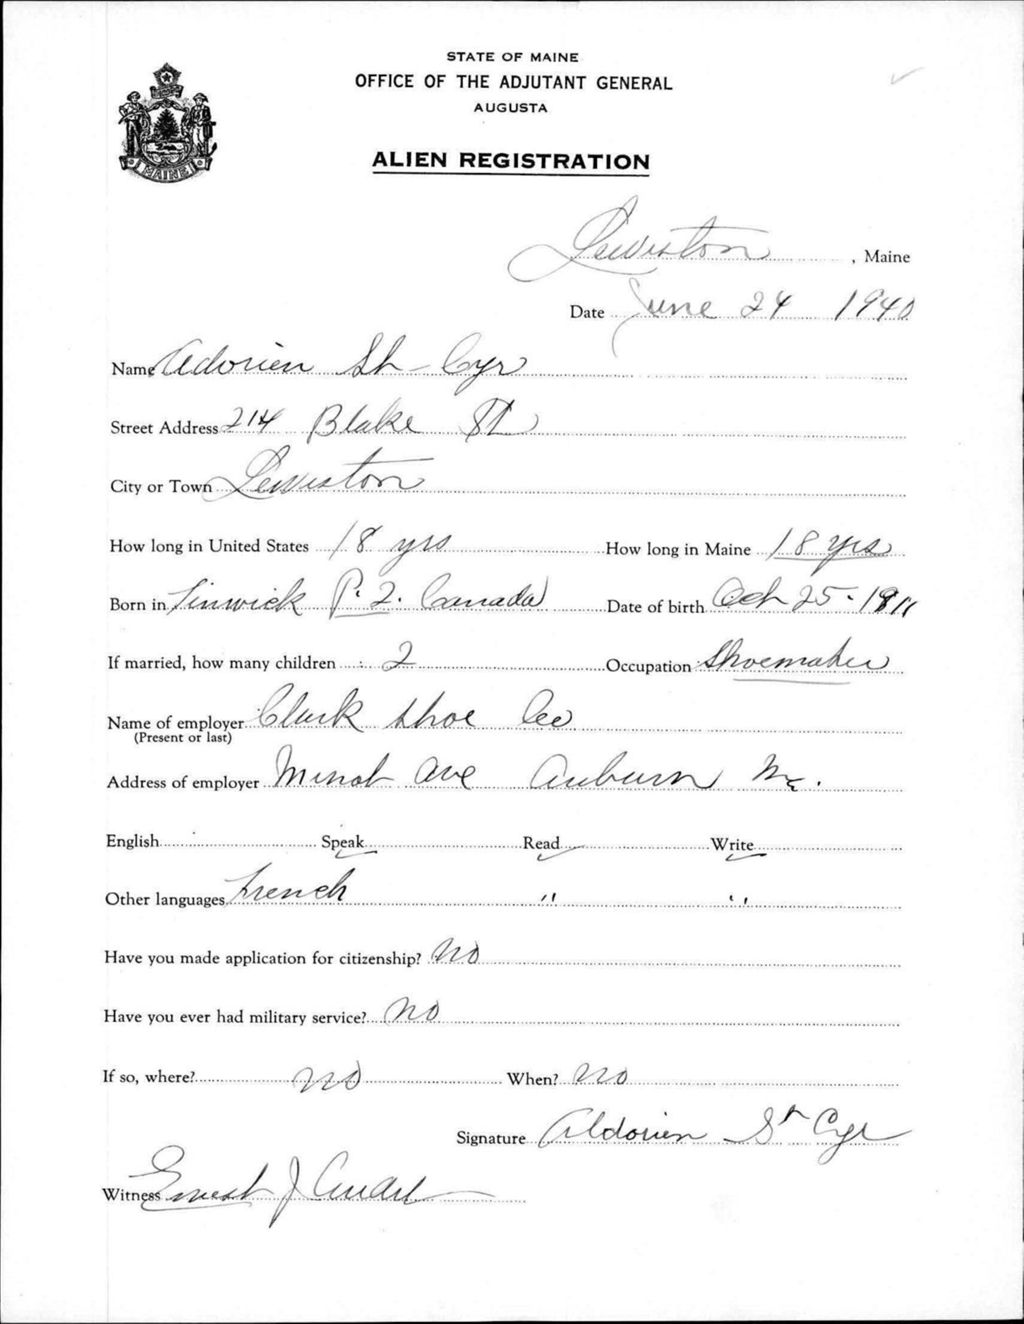 STATE OF MAINE
OFFICE OF THE ADJUTANT GENERAL
AUGUSTA
MAINE
ALIEN REGISTRATION
Lewiston, Maine
Date June 24 1940
Name Adorien St-Cyr
Street Address 214 Blake St
City or Town Lewiston
How long in United States 18 yrs How long in Maine 18 yrs
Born in Tinwick P.Q. Canada Date of birth Oct 25-1911
If married, how many children 2 Occupation Shoemaker
Name of employer Clark Shoe Co
(Present or last)
Address of employer Minot Ave Auburn Me.
English Speak Read Write
Other languages French " "
Have you made application for citizenship? No
Have you ever had military service? No
If so, where? no When? No
Signature Aldorien St Cyr
Witness Ernest J